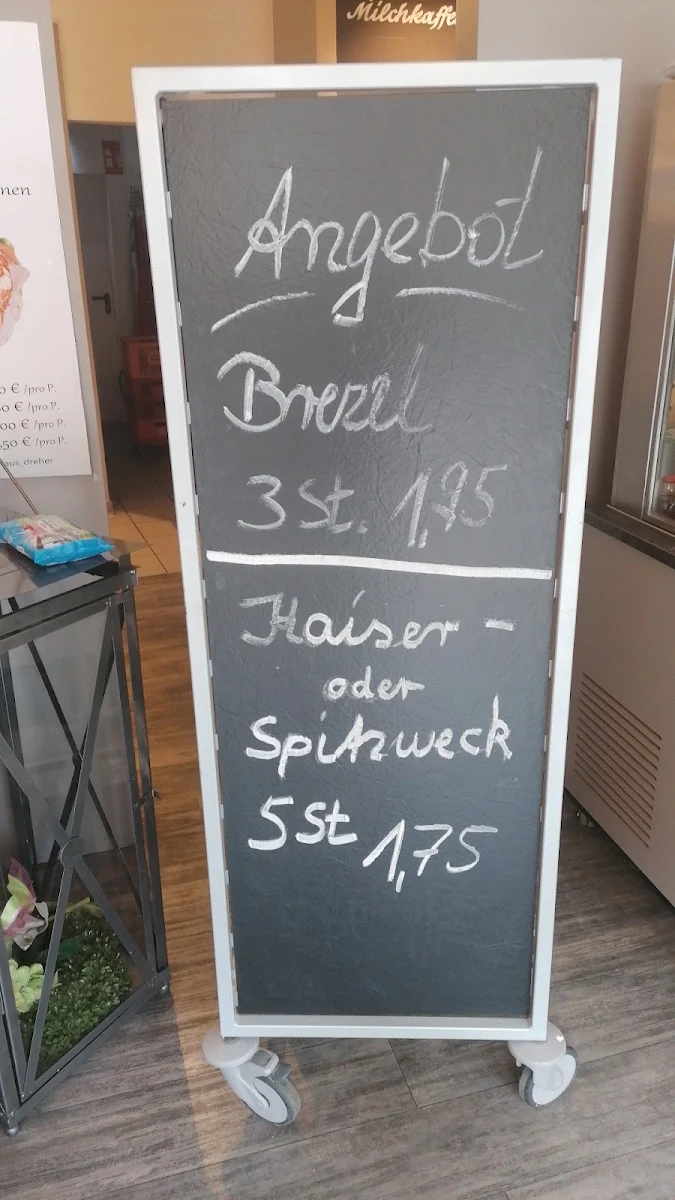 Milchkaffe
nen
0 € /pro P.
50 € /pro P.
00 € /pro P.
,50 € /pro P.
aus_dreher
Angebot
Brezel
3 St. 1,95
Kaiser -
oder
Spitzweck
5 St 1,75